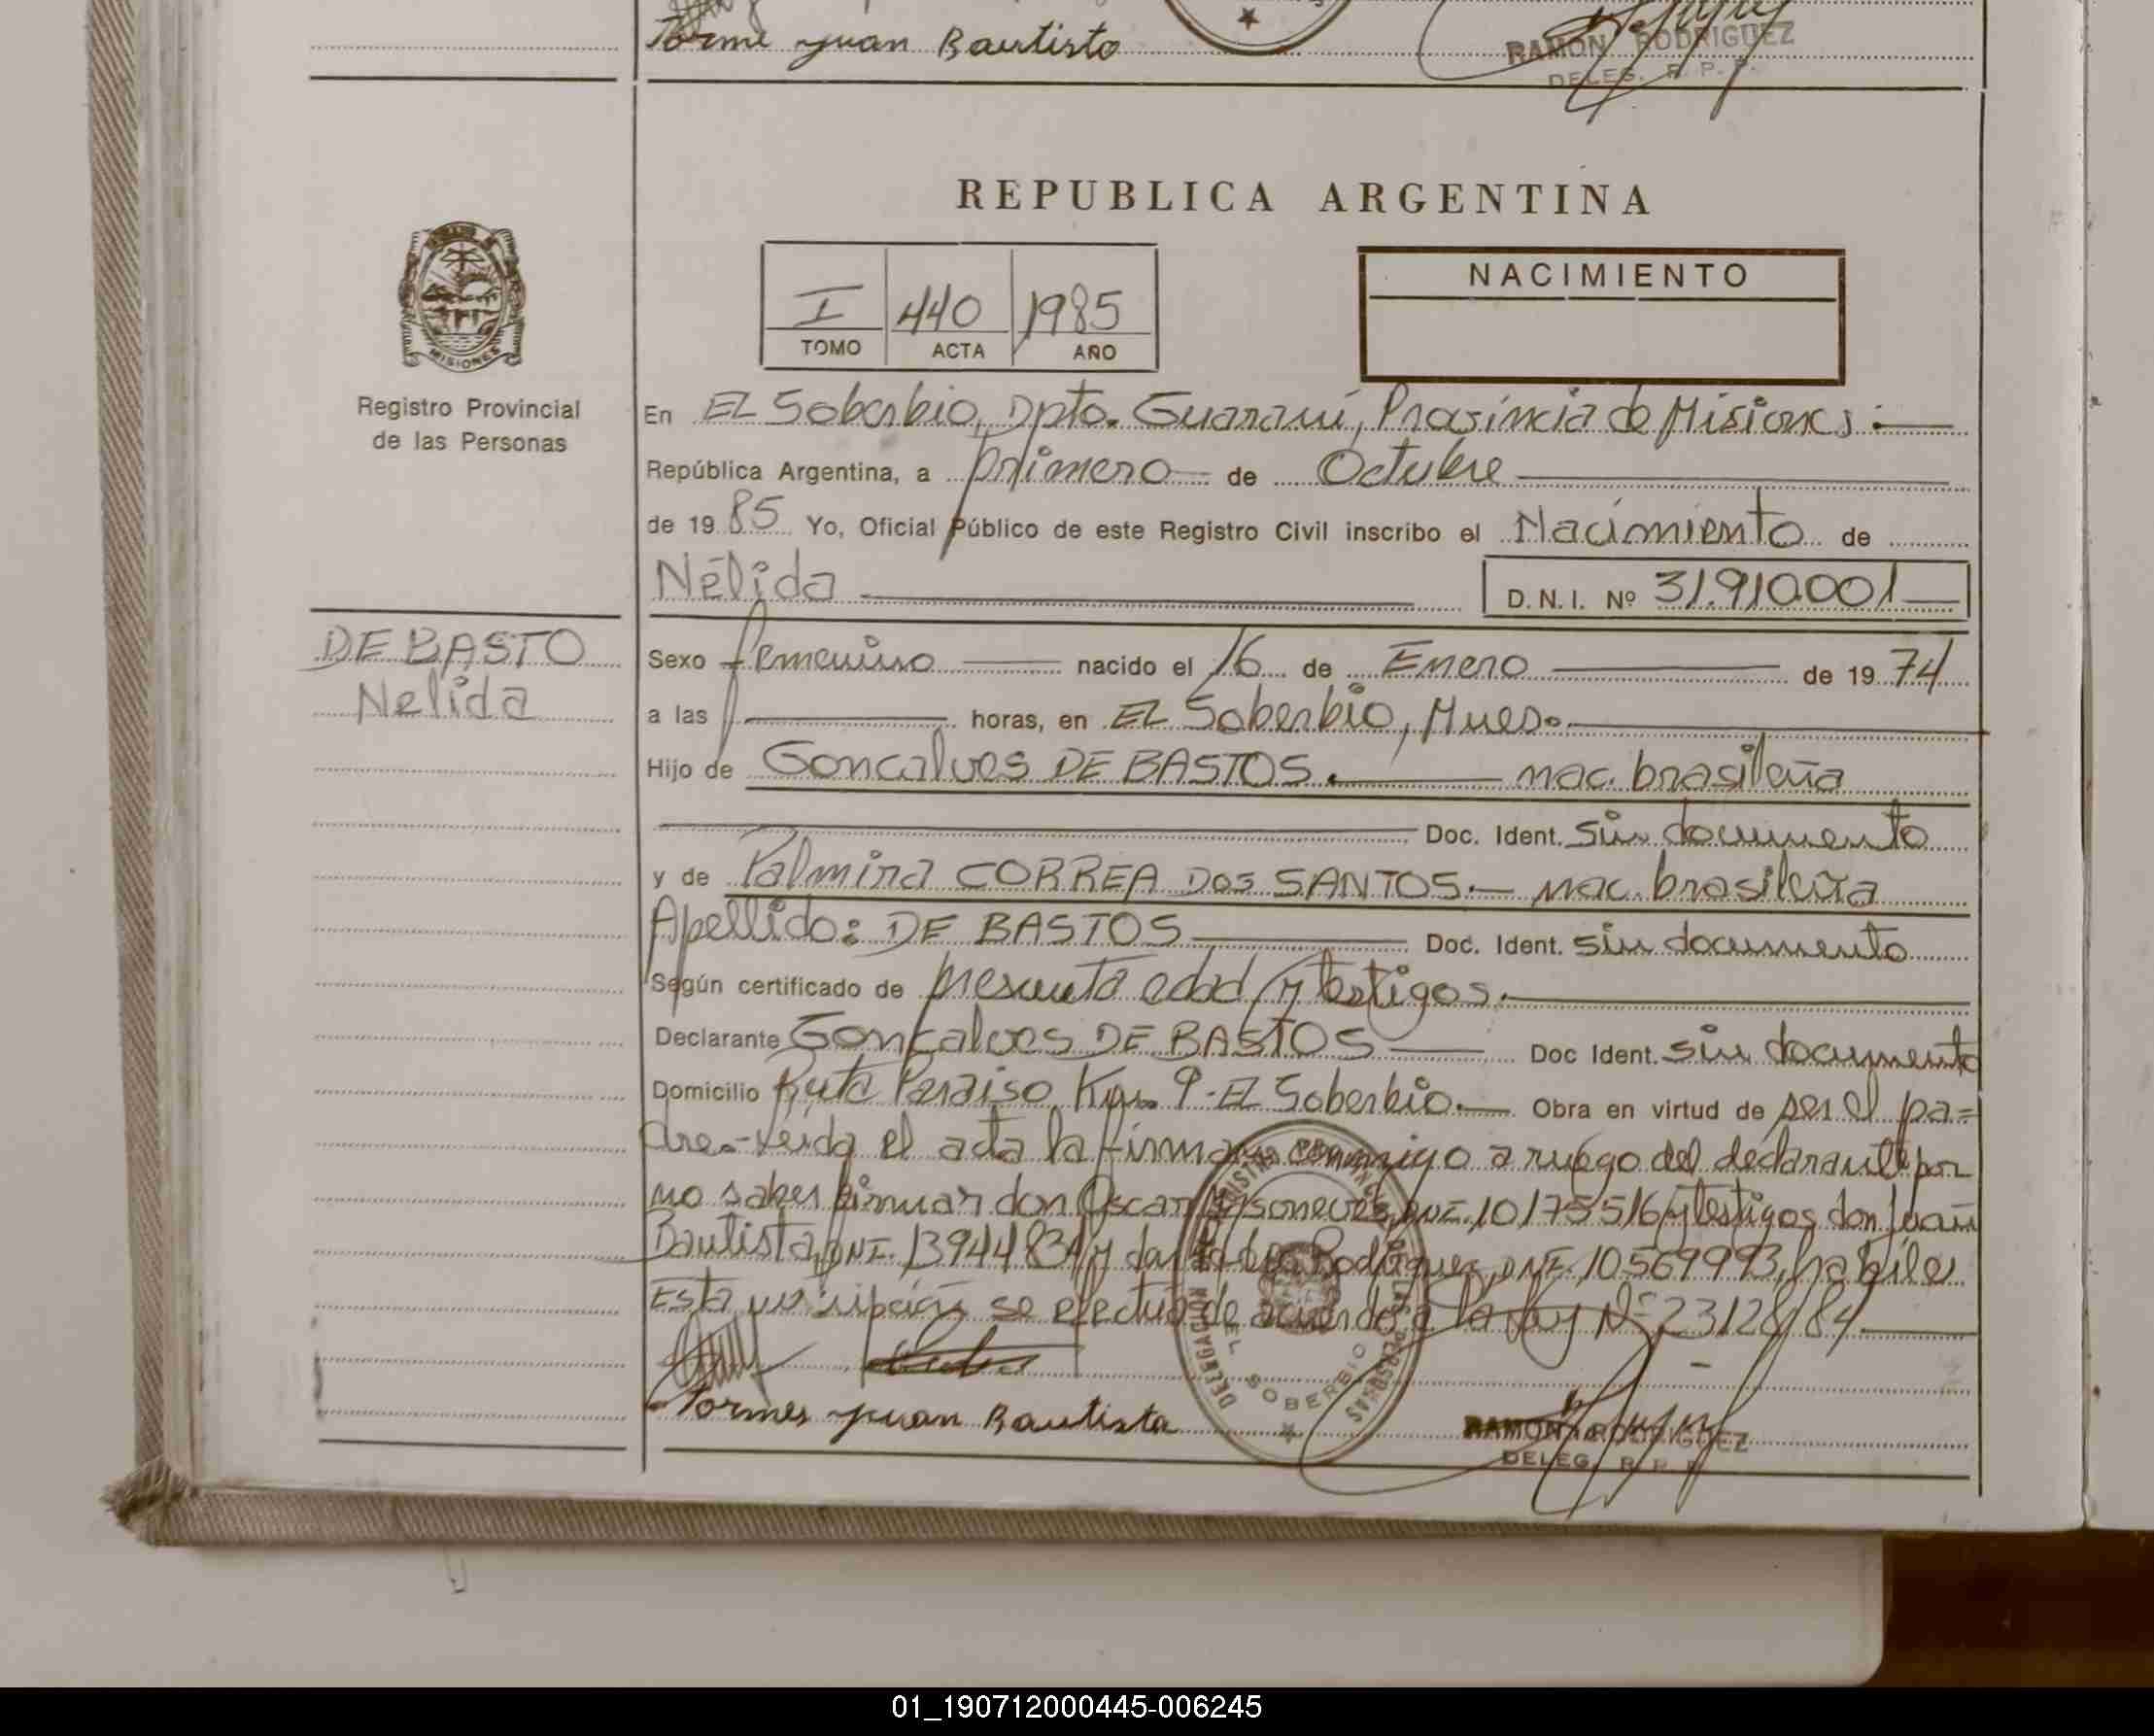 Torme Juan Bautisto
RAMON RODRIGUEZ
DELEG. R. P. P.
REPUBLICA ARGENTINA
MISIONES
Registro Provincial
de las Personas
I 440 1985
TOMO ACTA AÑO
NACIMIENTO
En EL Soberbio, Dpto. Guaraní, Provincia de Misiones.—
República Argentina, a primero de Octubre
de 1985 Yo, Oficial Público de este Registro Civil inscribo el Nacimiento de
Nélida D.N.I. Nº 31.910.001
DE BASTO
Nelida
Sexo femenino nacido el 16 de Enero de 1974
a las horas, en EL Soberbio, Mnes.
Hijo de Goncalves DE BASTOS. nac. brasileña
Doc. Ident. sin documento
y de Palmira CORREA DOS SANTOS.— nac. brasileña
Apellido: DE BASTOS Doc. Ident. sin documento
Según certificado de presunta edad y testigos.
Declarante Gonçalves DE BASTOS Doc Ident. sin documento
Domicilio Ruta Paraiso Km. 9-EL Soberbio.— Obra en virtud de ser el pa=
dre.-Leida el acta la firman conmigo a ruego del declarante por
no saber firmar don Oscar DNI. 10175516 y testigos don Juan
Bautista, DNI. 13944834 y don Rodriguez, DNI. 10569993, habiles
Esta inscripción se efectua de acuerdo a la Ley Nº 23128/84
Tormes Juan Bautista
REGISTRO PROVINCIAL DE LAS PERSONAS
DELEGACION EL SOBERBIO
RAMON RODRIGUEZ
DELEG. R. P. P.
01_190712000445-006245